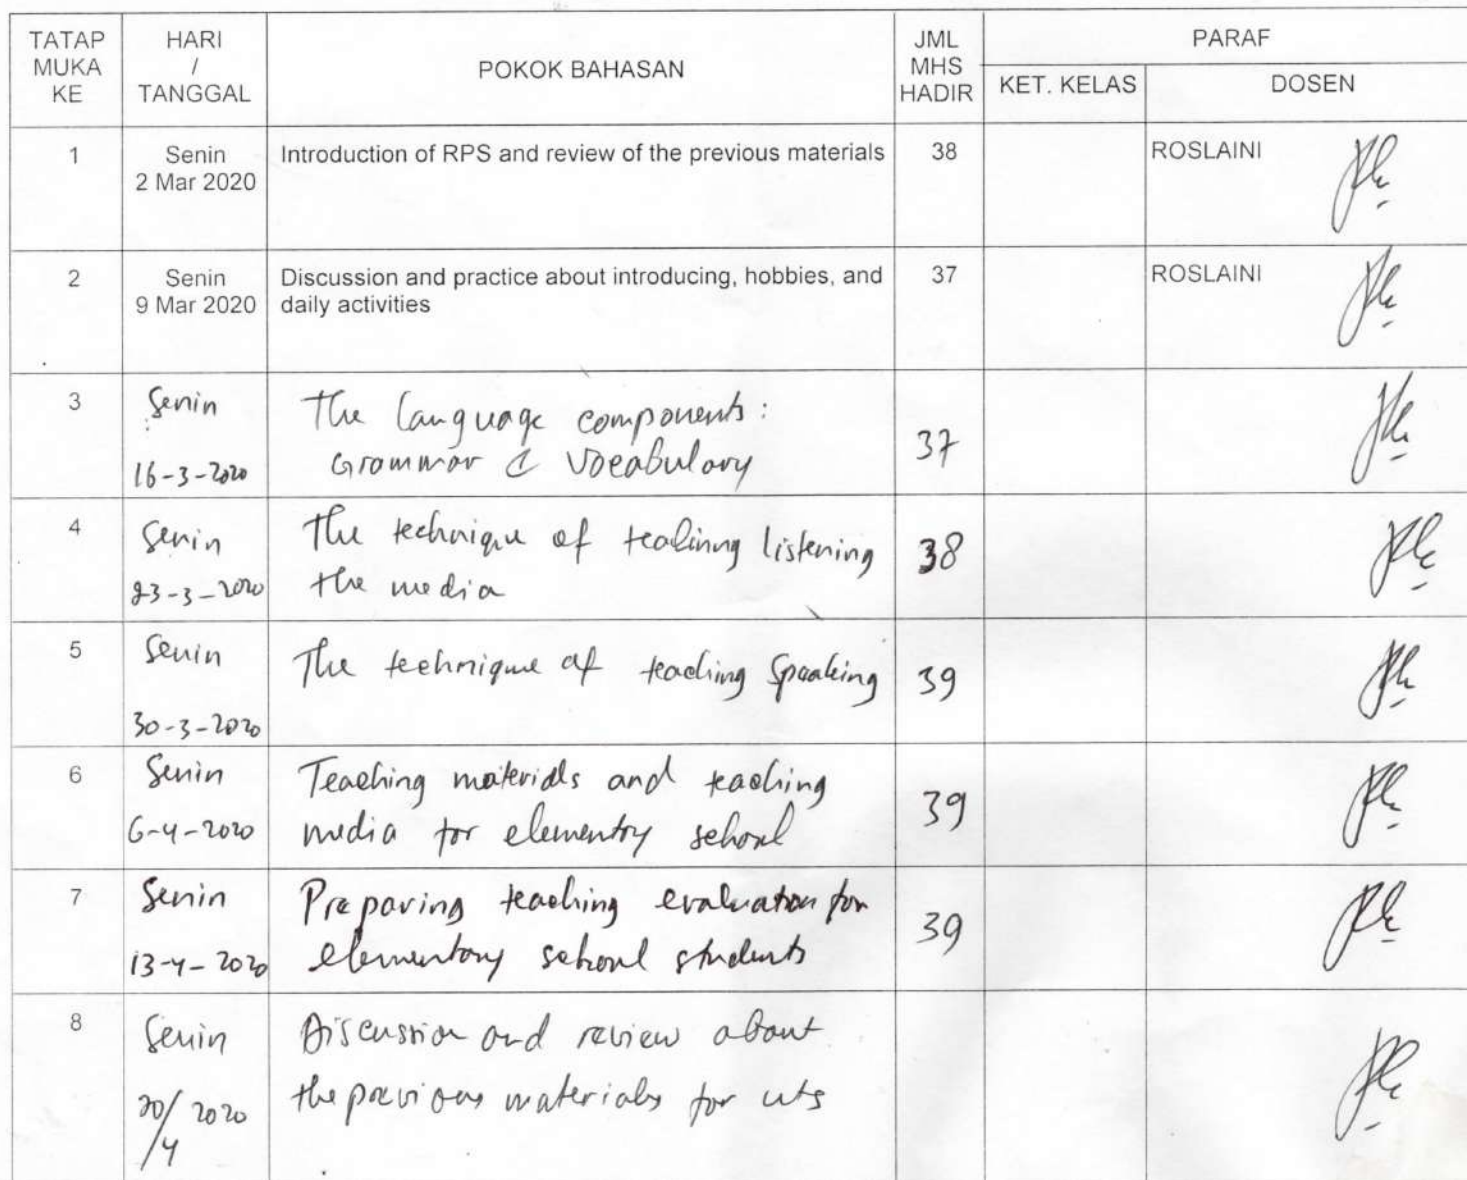 TATAP MUKA KE
HARI / TANGGAL
POKOK BAHASAN
JML MHS HADIR
PARAF
KET. KELAS
DOSEN
1
Senin
2 Mar 2020
Introduction of RPS and review of the previous materials
38
ROSLAINI
2
Senin
9 Mar 2020
Discussion and practice about introducing, hobbies, and
daily activities
37
ROSLAINI
3
Senin
16-3-2020
The language components:
Grammar & Vocabulary
37
4
Senin
23-3-2020
The technique of teaching listening
the media
38
5
Senin
30-3-2020
The technique of teaching Speaking
39
6
Senin
6-4-2020
Teaching materials and teaching
media for elementry school
39
7
Senin
13-4-2020
Preparing teaching evaluation for
elementary school students
39
8
Senin
20/4 2020
Discussion and review about
the previous materials for uts